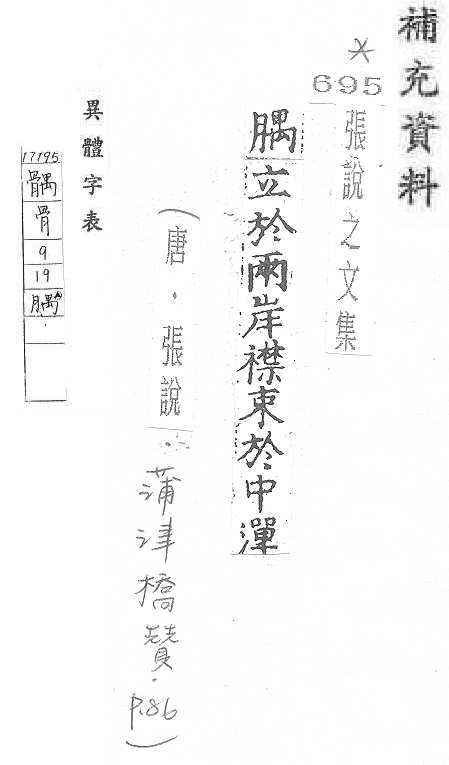 補充資料
*
695
張說之文集
腢立於兩岸襟束於中潬
(唐.張說.蒲津橋贊.P.86)
異體字表
17195
髃
骨
9
19
腢